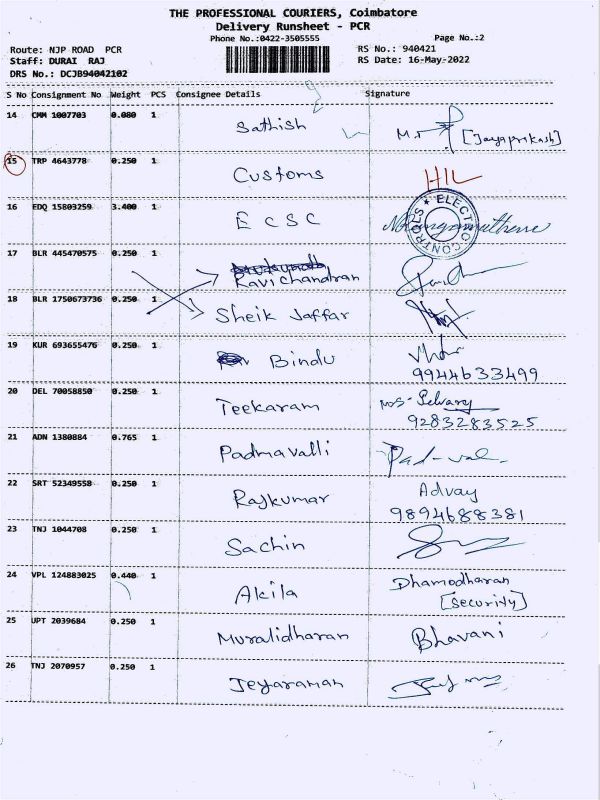 THE PROFESSIONAL COURIERS, Coimbatore
Delivery Runsheet - PCR
Phone No.:0422-3505555
Page No.:2
Route: NJP ROAD PCR
RS No.: 940421
Staff: DURAI RAJ
RS Date: 16-May-2022
DRS No.: DCJB94042102
S No Consignment No Weight PCS Consignee Details Signature
14 CMM 1007703 0.080 1 Sathish [Jayaprakash]
15 TRP 4643778 0.250 1 Customs HIL
16 EDQ 15803259 3.400 1 E C S C
ELECTRO CONTROLS
17 BLR 445470575 0.250 1 Ravichandran
18 BLR 1750673736 0.250 1 Sheik Jaffar
19 KUR 693655476 0.250 1 Bindu
9944633499
20 DEL 70058850 0.250 1 Teekaram
9283283525
21 ADN 1380884 0.765 1 Padmavalli Pad-val
22 SRT 52349558 0.250 1 Rajkumar Advay
9894688381
23 TNJ 1044708 0.250 1 Sachin
24 VPL 124883025 0.440 1 Akila Dhamodharan
[Security]
25 UPT 2039684 0.250 1 Muralidharan Bhavani
26 TNJ 2070957 0.250 1 Jeyaraman